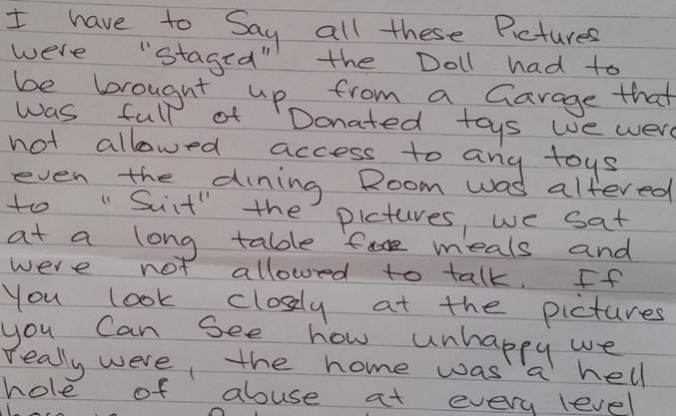 I have to Say all these Pictures
were "staged" the Doll had to
be brought up from a Garage that
was full of Donated toys we were
not allowed access to any toys
even the dining Room was altered
to "Suit" the pictures, we sat
at a long table for meals and
were not allowed to talk. If
You look closely at the pictures
you Can See how unhappy we
really were, the home was a hell
hole of abuse at every level